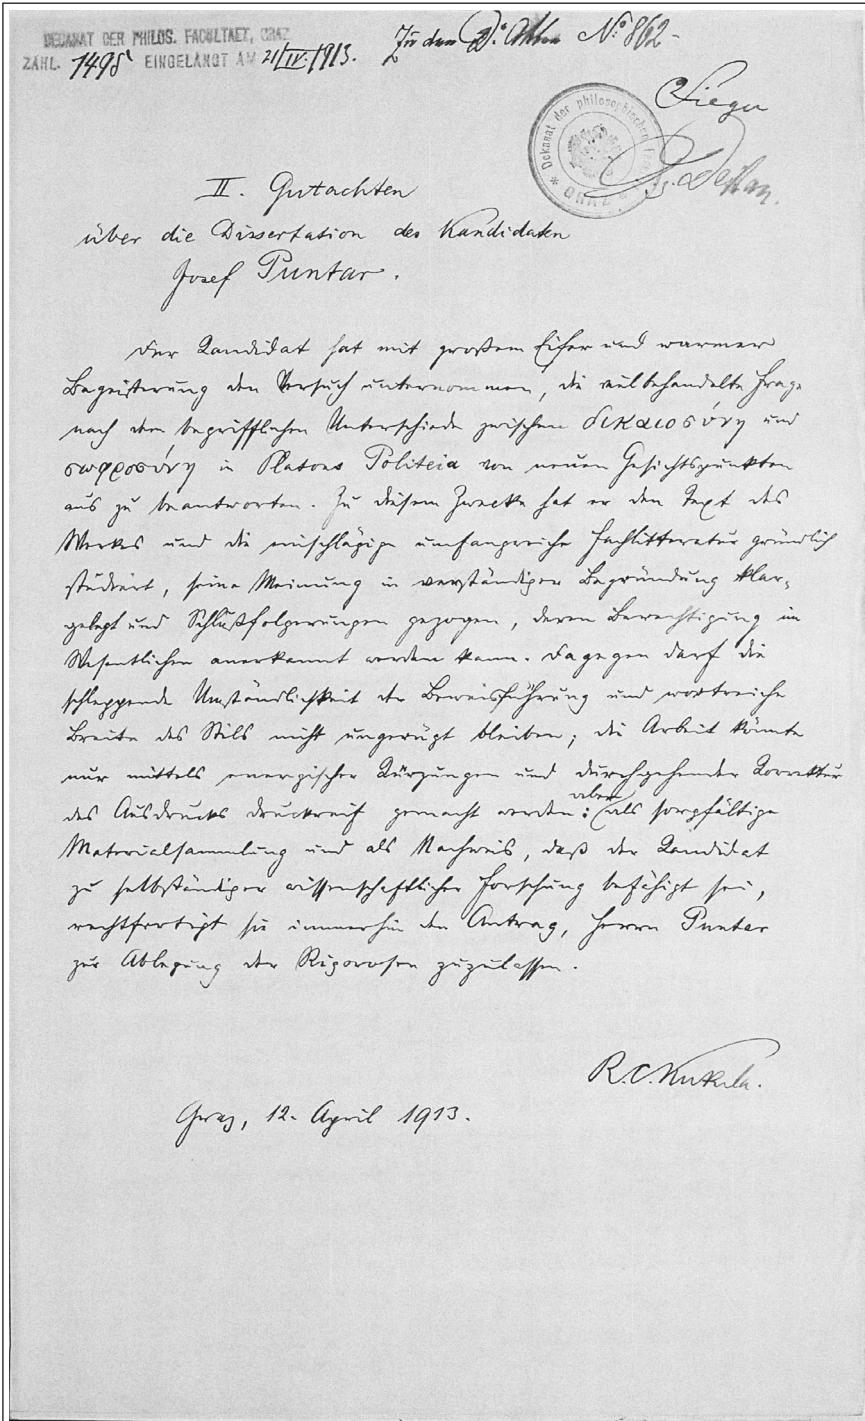 DECANAT DER PHILOS. FACULTAET, GRAZ
ZAHL 1498 EINGELANGT AM 21/IV. 1913.
Zu den Dr. Akten No. 862
Dekanat der philosophischen
GRAZ
II. Gutachten
über die Dissertation des Kandidaten
Josef Puntar.
Der Kandidat hat mit großem Eifer und warmer
Begeisterung den Versuch unternommen, die vielbehandelte Frage
nach dem begrifflichen Unterschiede zwischen δικαιοσύνη und
σωφροσύνη in Platons Politeia von neuen Gesichtspunkten
aus zu beantworten. Zu diesem Zwecke hat er den Text des
Werkes und die einschlägige umfangreiche Fachlitteratur gründlich
studiert, seine Meinung in verständiger Begründung klar-
gelegt und Schlußfolgerungen gezogen, deren Berechtigung im
Wesentlichen anerkannt werden kann. Dagegen darf die
schleppende Umständlichkeit der Beweisführung und wortreiche
Breite des Stils nicht ungerügt bleiben; die Arbeit könnte
nur mittels energischer Kürzungen und durchgehender Korrektur
des Ausdrucks druckreif gemacht werden: aber als sorgfältige
Materialsammlung und als Nachweis, daß der Kandidat
zu selbständiger wissenschaftlicher Forschung befähigt sei,
rechtfertigt sie immerhin den Antrag, Herrn Puntar
zur Ablegung der Rigorosen zuzulassen.
R. C. Kukula.
Graz, 12. April 1913.